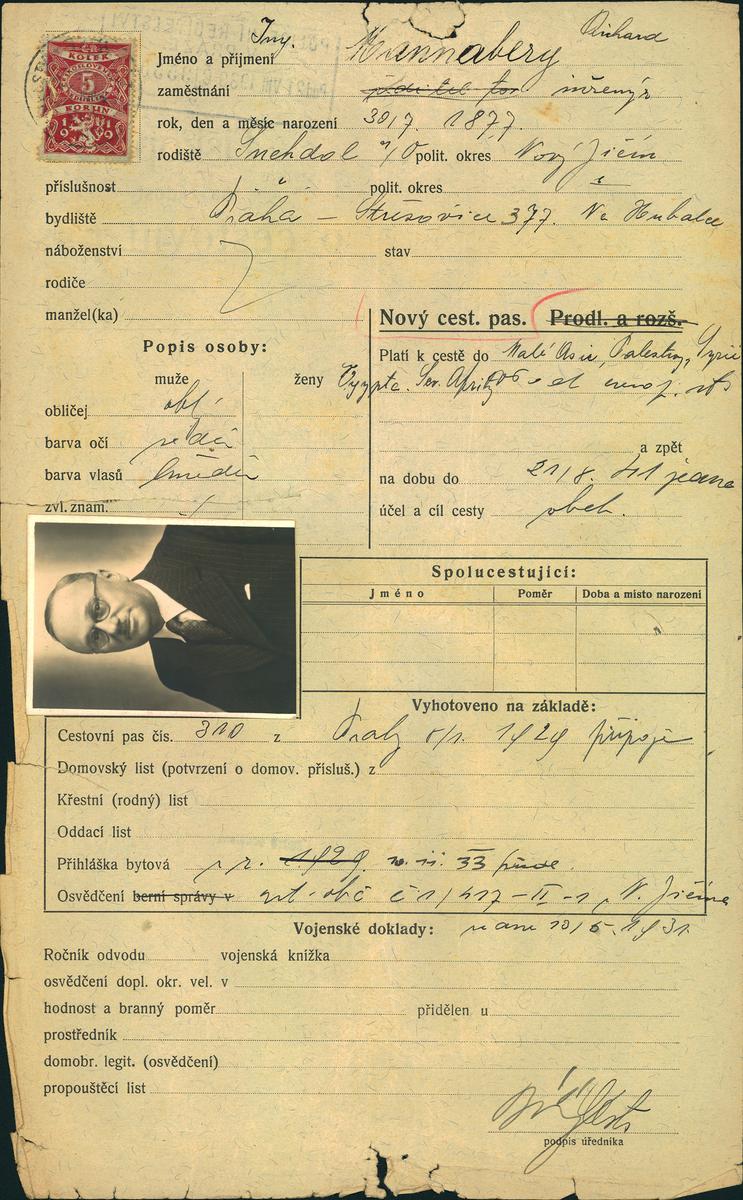 KOLEK
5
KORUN
Ing. Hannabery Richard
Jméno a příjmení
zaměstnání inženýr
rok, den a měsíc narození 30/7. 1877.
rodiště polit. okres Nový Jičín
příslušnost polit. okres
bydliště Praha – Střešovice 377. Na Hubalce
náboženství stav
rodiče
manžel(ka)
Nový cest. pas. Prodl. a rozš.
Popis osoby:
Platí k cestě do Malé Asie, Palestiny, Syrie
muže ženy
Egypta. Sev. Afriky
obličej obl.
barva očí šedá
a zpět
barva vlasů hnědá
na dobu do 21/8. 41
zvl. znam.
účel a cíl cesty obch.
Spolucestující:
Jméno Poměr Doba a místo narození
Vyhotoveno na základě:
Cestovní pas čís. 310 z Prahy 1929 připoje
Domovský list (potvrzení o domov. přísluš.) z
Křestní (rodný) list
Oddací list
Přihláška bytová z r. 1929 33
Osvědčení berní správy v č 1/417-II-1, N. Jičína
Vojenské doklady: 1931.
Ročník odvodu vojenská knížka
osvědčení dopl. okr. vel. v
hodnost a branný poměr přidělen u
prostředník
domobr. legit. (osvědčení)
propouštěcí list
podpis úředníka